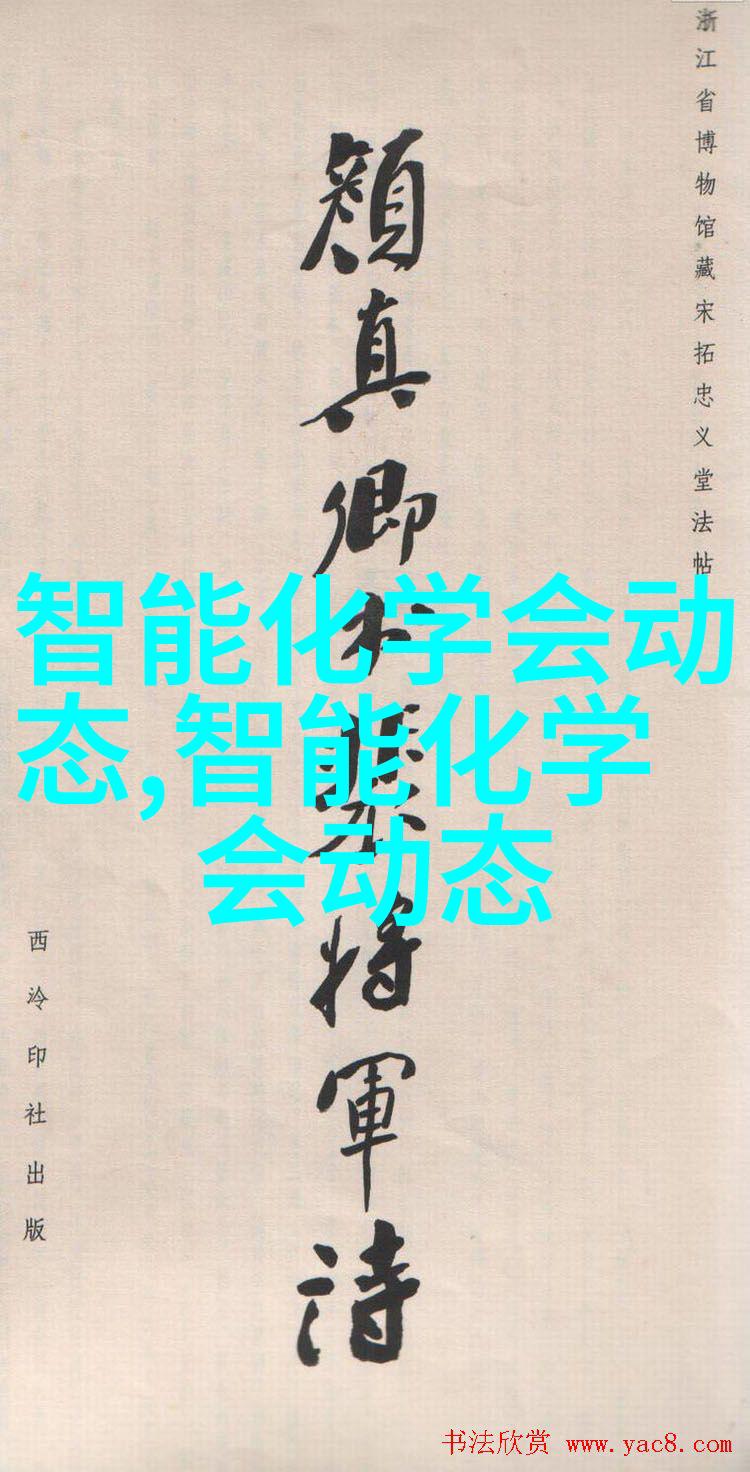 浙江省博物馆藏宋拓忠义堂法帖
顏真卿书裴将軍詩
智能化学会动
态,智能化学
会动态
西泠印社出版
书法欣赏 www.yac8.com